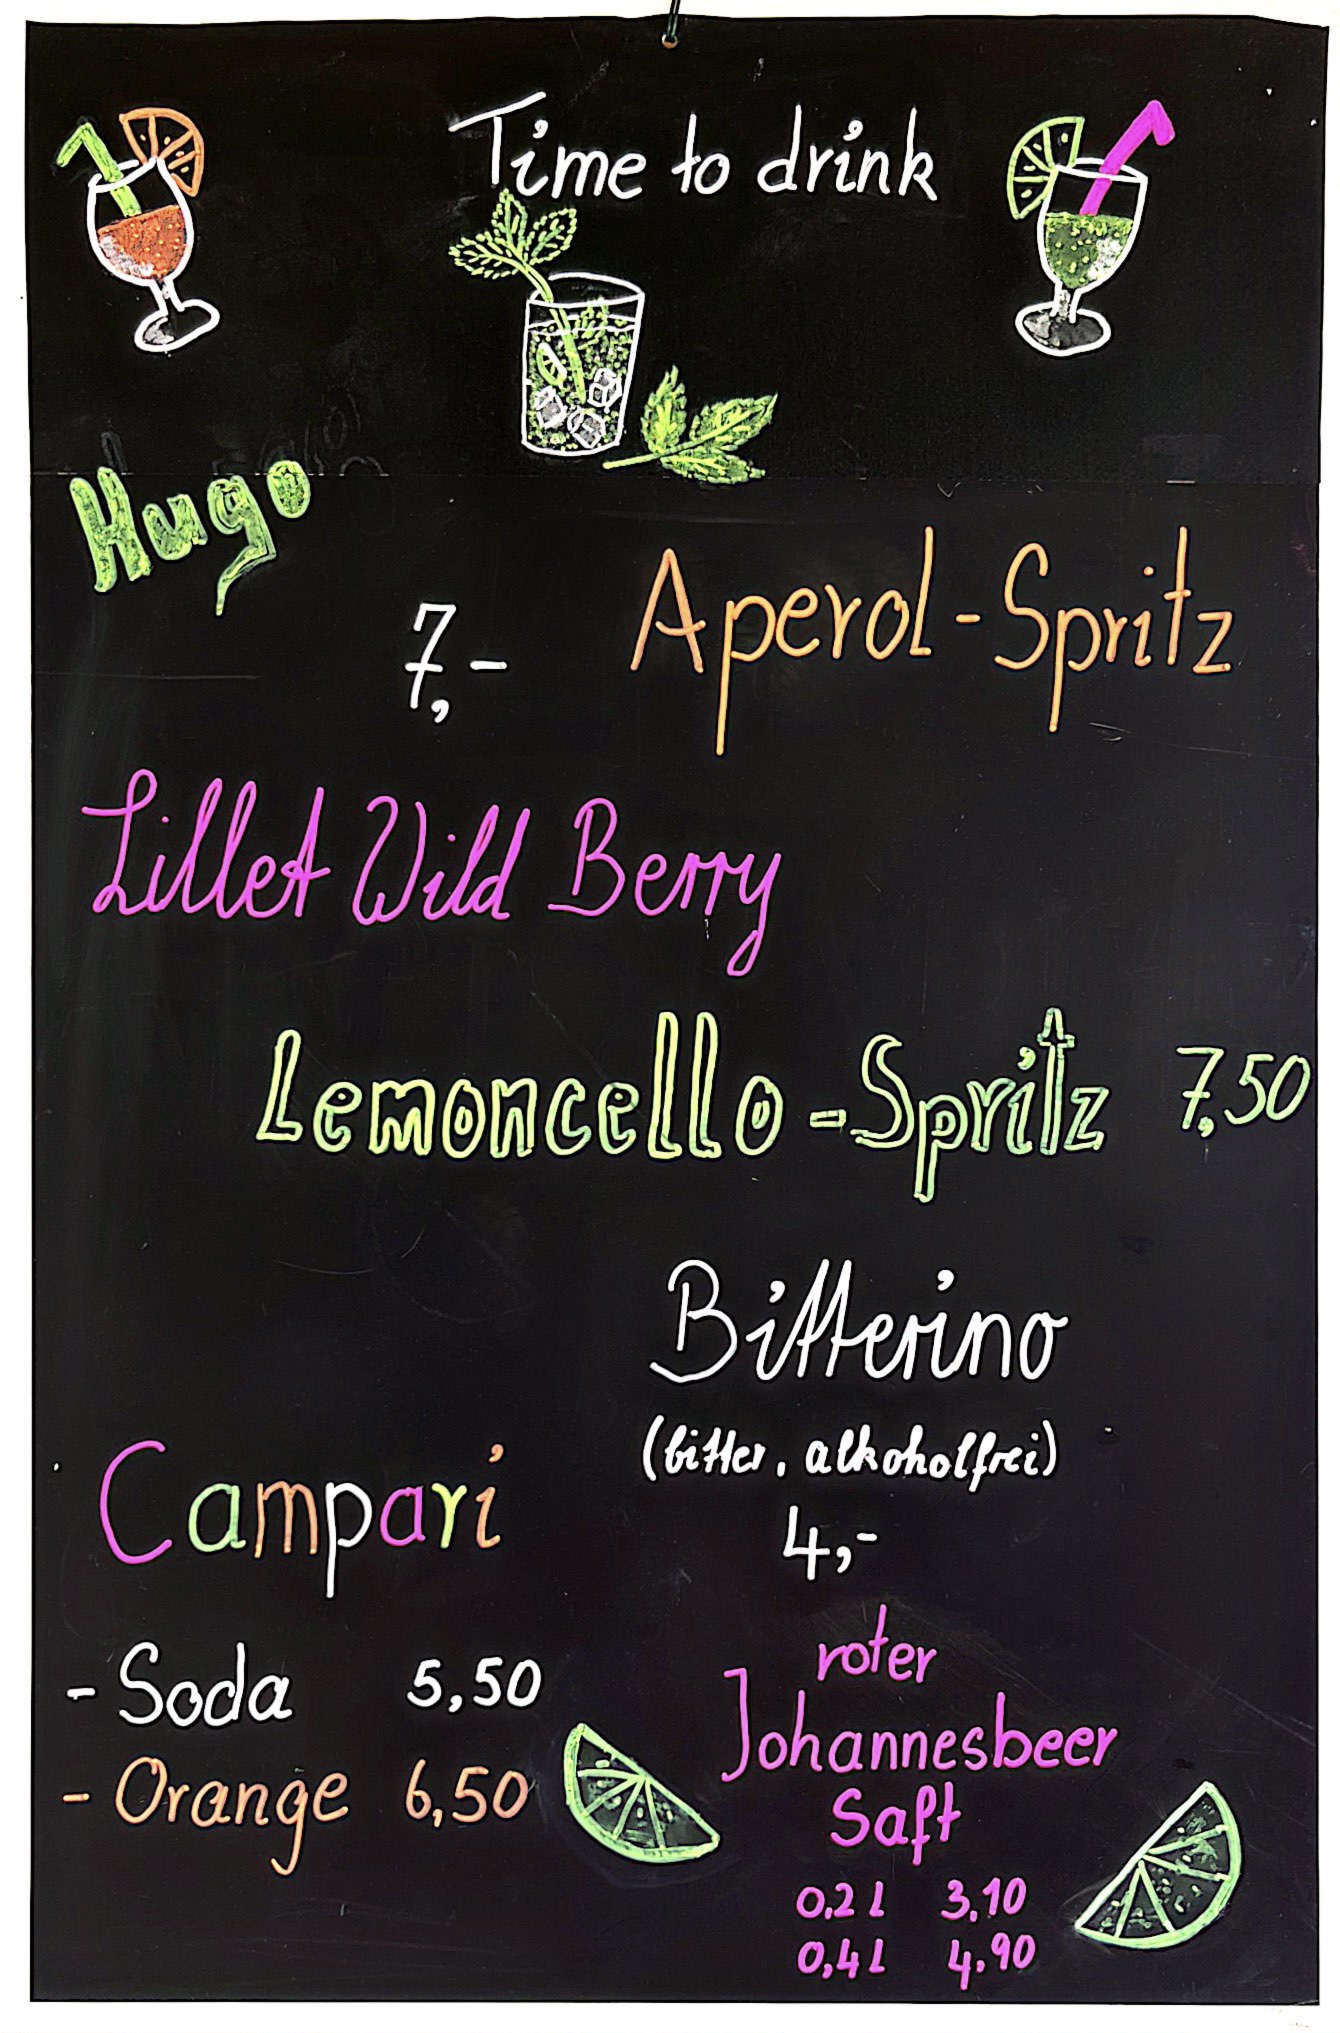 Time to drink
Hugo
7,-
Aperol-Spritz
Lillet Wild Berry
Lemoncello-Spritz 7,50
Bitterino
(bitter, alkoholfrei)
4,-
Campari
- Soda 5,50
- Orange 6,50
roter
Johannesbeer
Saft
0,2 l 3,10
0,4 l 4,90